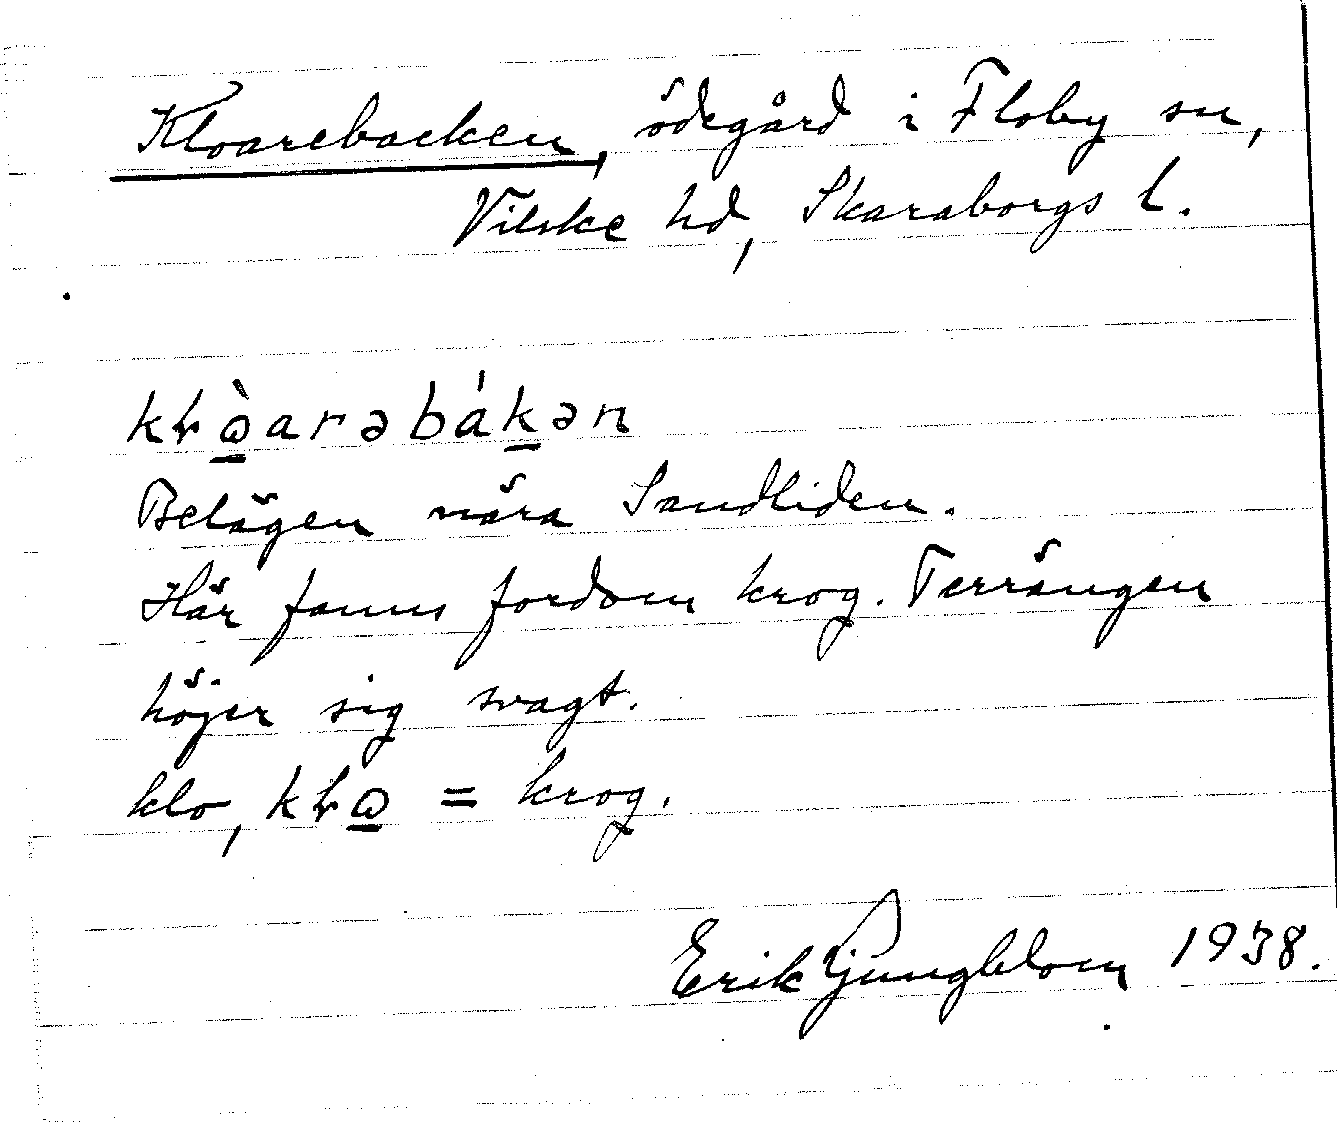 Kloarebacken, ödegård i Floby sn,
Vilske hd, Skaraborgs l.
kɫò̠arəbák̠ən
Belägen nära Sandliden.
Här fanns fordom krog. Terrängen
höjer sig svagt.
klo, kɫo̠ = krog.
Erik Ljungblom 1938.